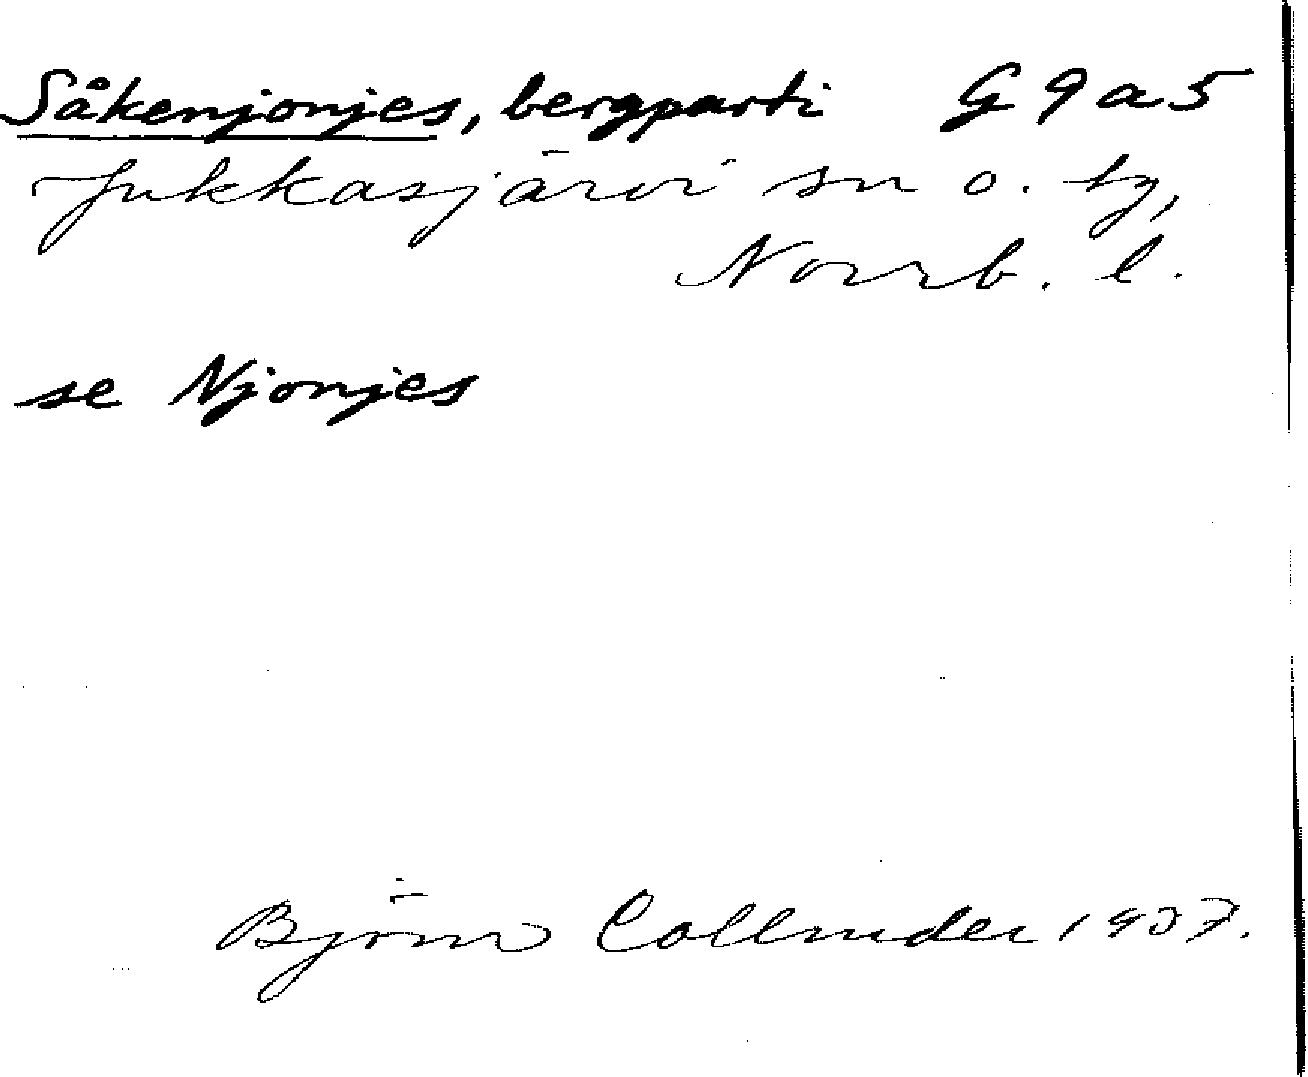 Såkenjonjes, bergparti G 9 a 5
Jukkasjärvi sn o. tg,
Norrb. l.
se Njonjes
Björn Collinder 1937.